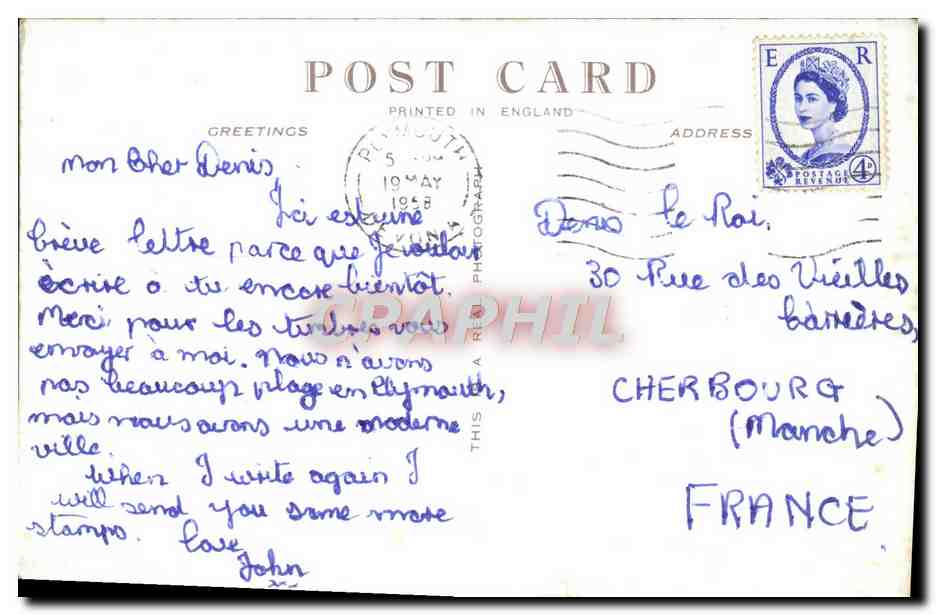 POST CARD
PRINTED IN ENGLAND
GREETINGS
ADDRESS
E R
POSTAGE
REVENUE
4D
PLYMOUTH
19 MAY
1958
THIS IS A REAL PHOTOGRAPH
CRAPHIL
Mon Cher Denis,
Ici est une
brève lettre parce que Je voulais
écrire a tu encore bientôt.
Merci pour les timbres vous
envoyer à moi. Nous n'avons
pas beaucoup plage en Plymouth,
mais nous avons une moderne
ville.
When I write again I
will send you some more
stamps.
Love
John
Denis le Roi,
30 Rue des Vieilles
Carrières,
CHERBOURG
(Manche)
FRANCE